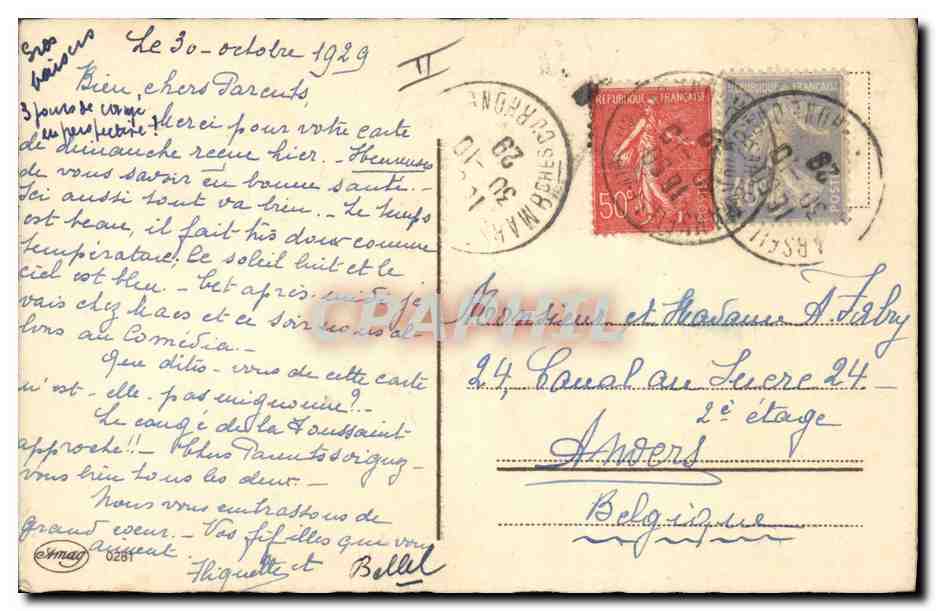 Gros
baisers
Le 30-octobre 1929
II
Bien chers Parents,
3 jours de congé
en perspective !
Merci pour votre carte
de dimanche reçue hier. - Heureuses
de vous savoir en bonne santé. -
Ici aussi tout va bien. - Le temps
est beau, il fait très doux comme
température. Le soleil luit et le
ciel est bleu. - Cet après-midi je
vais chez et ce soir nous al-
lons au Comédia. -
Que dites-vous de cette carte
n'est-elle pas mignonne? -
Le congé de la Toussaint
approche!! - Chers Parents soignez-
vous bien tous les deux. -
Nous vous embrassons de
grand cœur. - Vos fifilles qui vous
aiment.
et Bellel
Amag 0281
RÉPUBLIQUE FRANÇAISE
50c
RÉPUBLIQUE FRANÇAISE
POSTES
30 -10
29
CRAPHIL
Monsieur et Madame A.
24, Canal au Sucre 24 -
2e étage
Anvers
Belgique